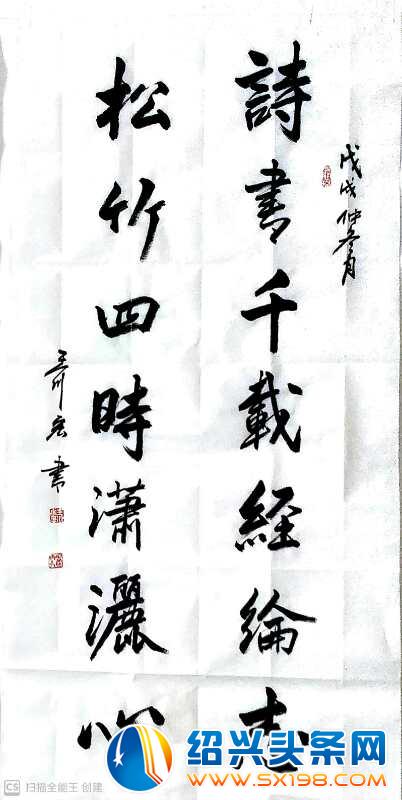 戊戌仲冬月
詩書千載經綸志
松竹四時瀟灑心
書
绍兴头条网
www.SX198.com
CS 扫描全能王 创建